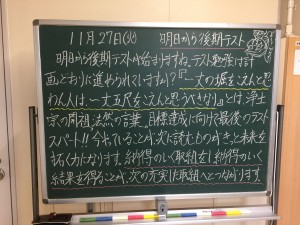 11月27日(火) 明日から後期テスト
明日から後期テストが始まりますね。テスト勉強は計
画どおりに進められていますか?『一丈の堀をこえんと思
わん人は、一丈五尺をこえんと思うべきなり』とは、浄土
宗の開祖法然の言葉。目標達成に向けて最後のテスト
スパート!!今やっていることが、次に読むものがき、と未来を
拓く力になります。納得のいく取組をし、納得のいく
結果を得ることが、次の充実した取組へとつながります。